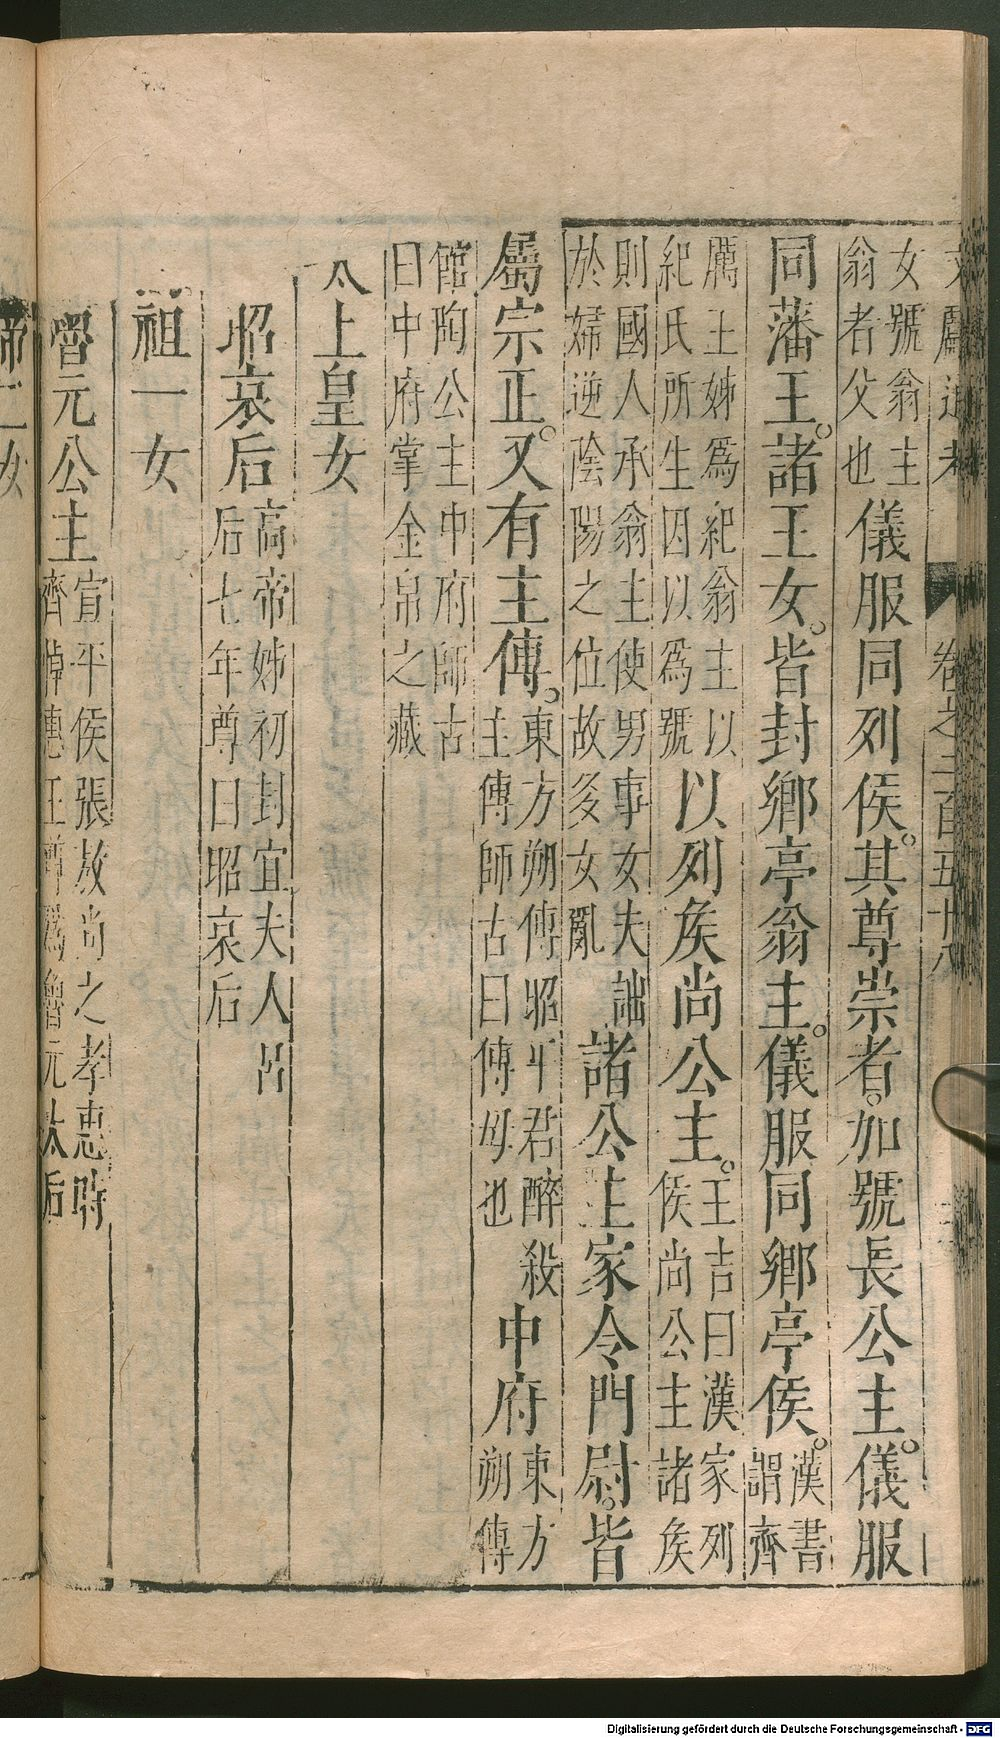 文獻通考 卷之二百五十八
女號翁主
翁者父也
儀服同列侯。其尊崇者。加號長公主。儀服
同藩王。諸王女。皆封鄉亭翁主。儀服同鄉亭侯。
漢書
謂齊
厲王姊爲紀翁主以
紀氏所生因以爲號
以列侯尚公主。
王吉曰漢家列
侯尚公主諸侯
則國人承翁主使男事女夫詘
於婦逆陰陽之位故多女亂
諸公主家令門尉。皆
屬宗正。又有主傅。
東方朔傳昭平君醉殺
主傅師古曰傅母也
中府
東方
朔傳
館陶公主中府師古
曰中府掌金帛之藏
太上皇女
昭哀后
高帝姊初封宜夫人呂
后七年尊曰昭哀后
祖一女
魯元公主
宣平侯張敖尚之孝惠時
齊悼惠王尊爲魯元太后
帝一女
Digitalisierung gefördert durch die Deutsche Forschungsgemeinschaft - DFG